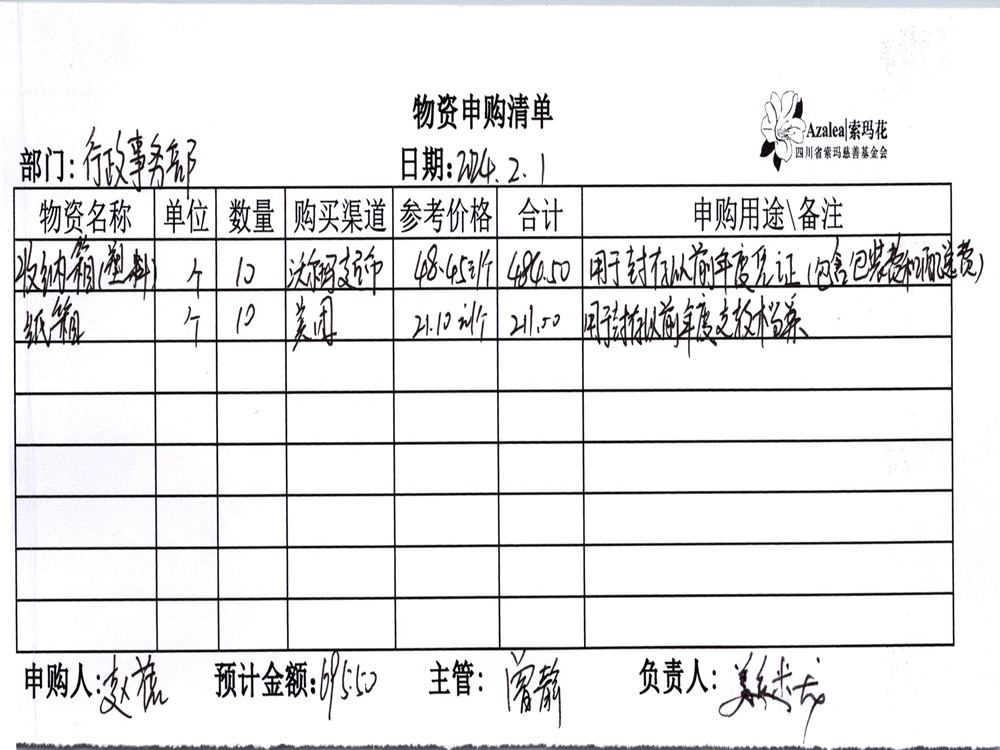 物资申购清单
Azalea|索玛花
四川省索玛慈善基金会
部门：行政事务部 日期：2024.2.1
物资名称 单位 数量 购买渠道 参考价格 合计 申购用途\备注
收纳箱(塑料) 个 10 沃尔玛 48.45元/个 484.50 用于封存以前年度凭证(包含包装费和配送费)
纸箱 个 10 美团 21.10元/个 211.00 用于封存以前年度文教档案
申购人： 预计金额：695.50 主管：曾静 负责人：